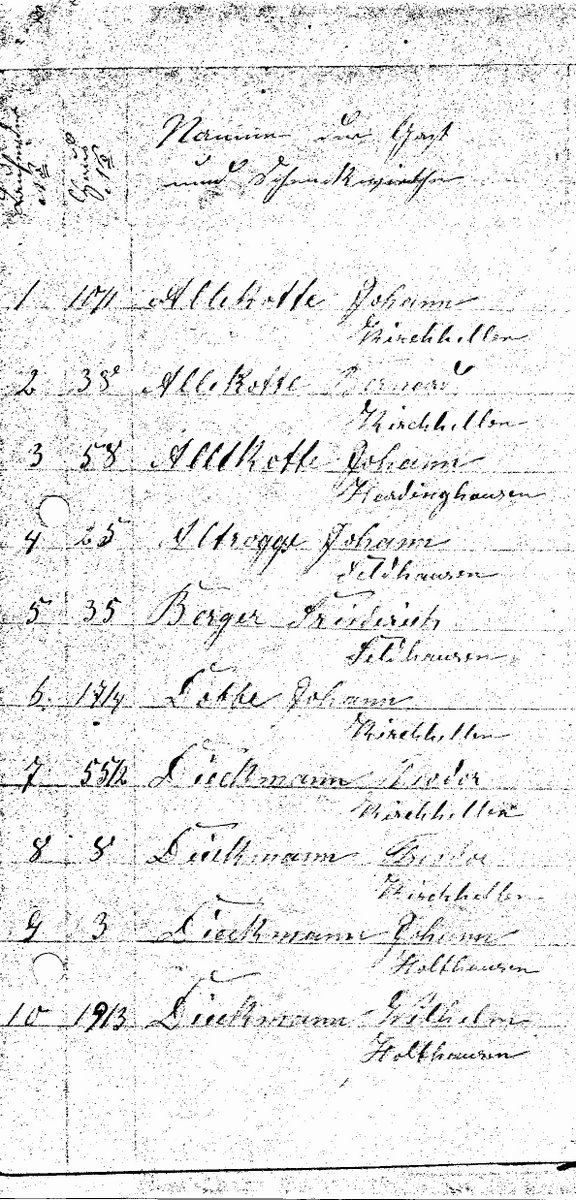 Laufende No
Haus No
Namen der Gast
und Schenkwirthe
1 10/1 Allekotte Johann
Kirchhellen
2 38 Allekotte Bernard
Kirchhellen
3 58 Alltkotte Johann
Hardinghausen
4 25 Altrogge Johann
Feldhausen
5 35 Berger Friederich
Feldhausen
6 17/4 Johann
Kirchhellen
7 55/2 Dieckmann Teodor
Kirchhellen
8 8 Dieckmann Theodor
Kirchhellen
9 3 Dieckmann Johann
Holthausen
10 19/3 Dieckmann Wilhelm
Holthausen